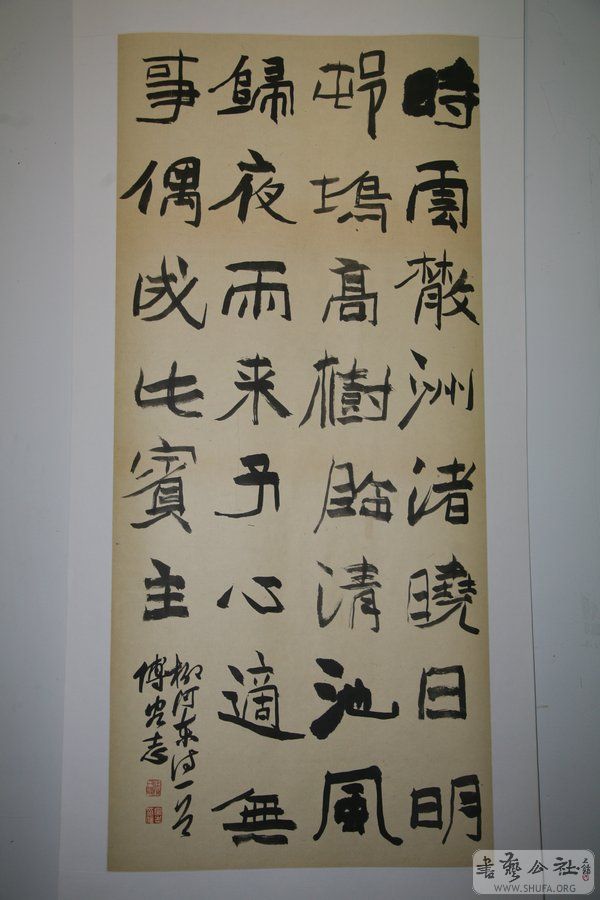 時雲散洲渚曉日明
邨塢高樹臨清池風
歸夜雨来予心適無
事偶成此賓主
柳河東诗一首
傅志
書藝公社
WWW.SHUFA.ORG